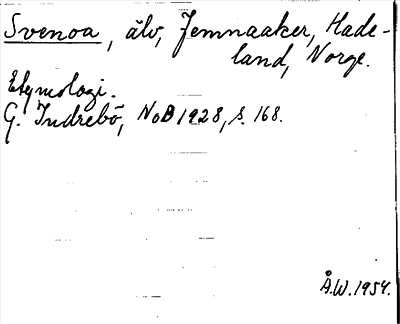 Svenoa, älv, Jemnaaker, Hade-
land, Norge.
Etymologi.
G. Indrebö, NoB 1928, s. 168.
Å.W. 1954.